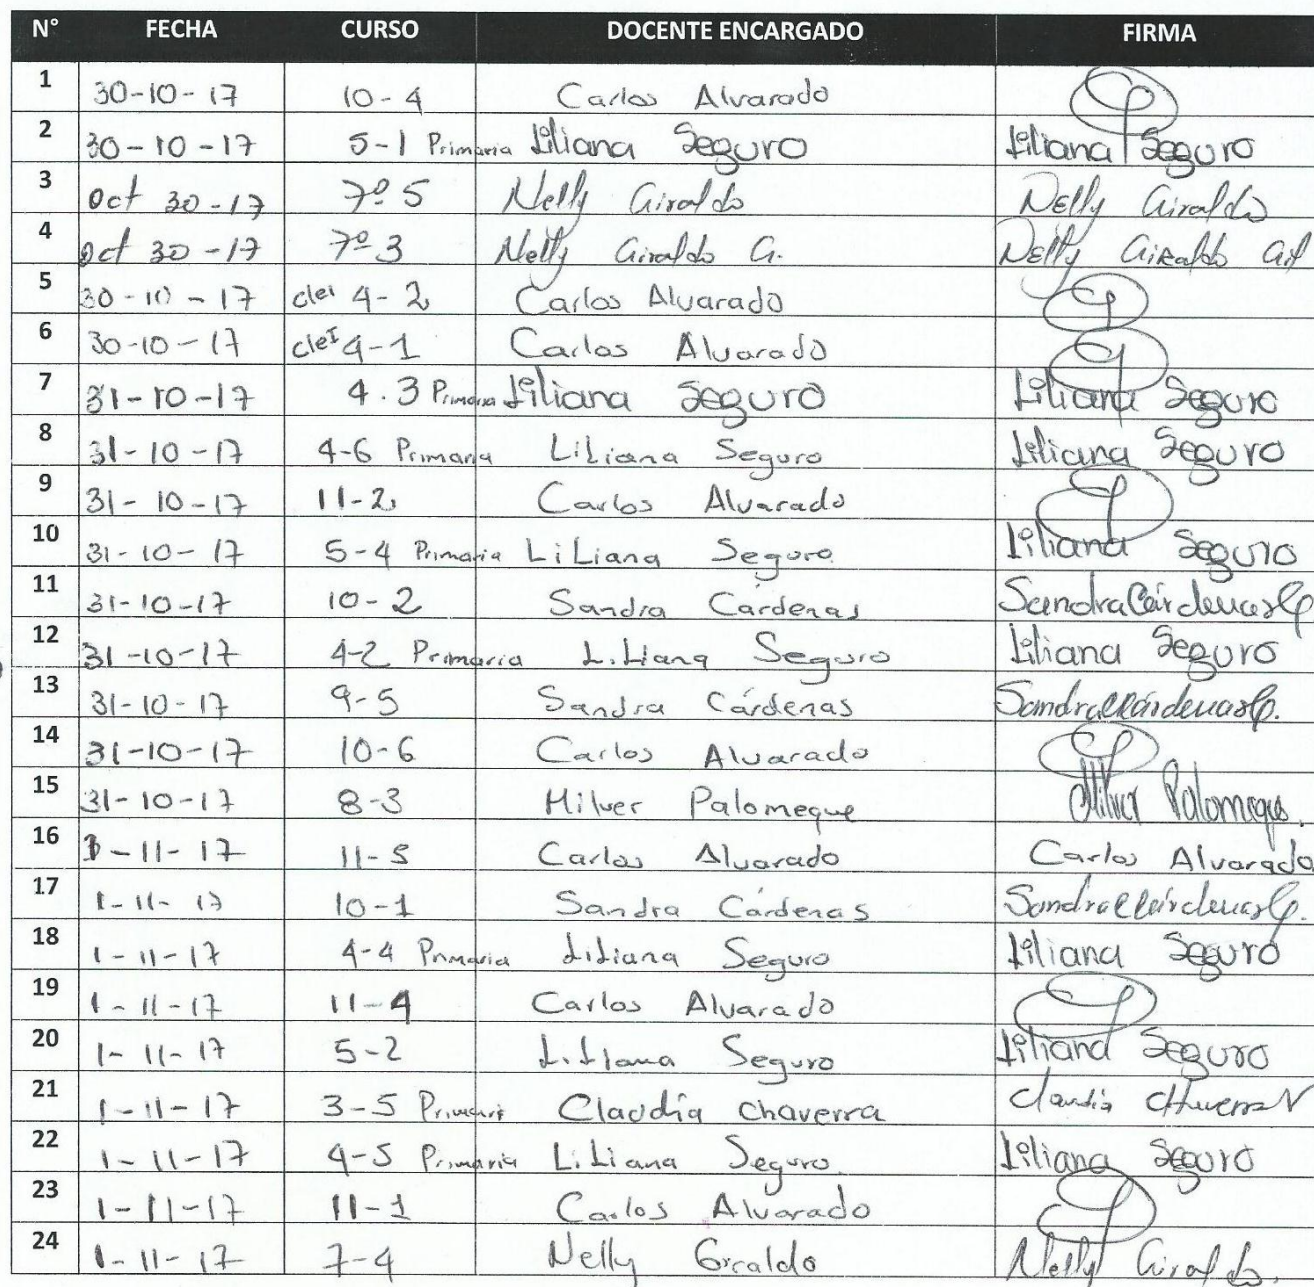 N° FECHA CURSO DOCENTE ENCARGADO FIRMA
1 30-10-17 10-4 Carlos Alvarado
2 30-10-17 5-1 Primaria Liliana Seguro Liliana Seguro
3 Oct 30-17 7º 5 Nelly Giraldo Nelly Giraldo
4 Oct 30-17 7º 3 Nelly Giraldo G. Nelly Giraldo Gil
5 30-10-17 clei 4-2 Carlos Alvarado
6 30-10-17 cleI 4-1 Carlos Alvarado
7 31-10-17 4.3 Primaria Liliana Seguro Liliana Seguro
8 31-10-17 4-6 Primaria LiLiana Seguro Liliana Seguro
9 31-10-17 11-2 Carlos Alvarado
10 31-10-17 5-4 Primaria LiLiana Seguro Liliana Seguro
11 31-10-17 10-2 Sandra Cárdenas Sandra Cárdenas
12 31-10-17 4-2 Primaria LiLiana Seguro Liliana Seguro
13 31-10-17 9-5 Sandra Cárdenas Sandra Cárdenas
14 31-10-17 10-6 Carlos Alvarado
15 31-10-17 8-3 Milver Palomeque Milver Palomeque
16 1-11-17 11-5 Carlos Alvarado Carlos Alvarado
17 1-11-17 10-1 Sandra Cárdenas Sandra Cárdenas
18 1-11-17 4-4 Primaria Liliana Seguro Liliana Seguro
19 1-11-17 11-4 Carlos Alvarado
20 1-11-17 5-2 Liliana Seguro Liliana Seguro
21 1-11-17 3-5 Primaria Claudia chaverra Claudia Chaverra
22 1-11-17 4-5 Primaria LiLiana Seguro Liliana Seguro
23 1-11-17 11-1 Carlos Alvarado
24 1-11-17 7-4 Nelly Giraldo Nelly Giraldo